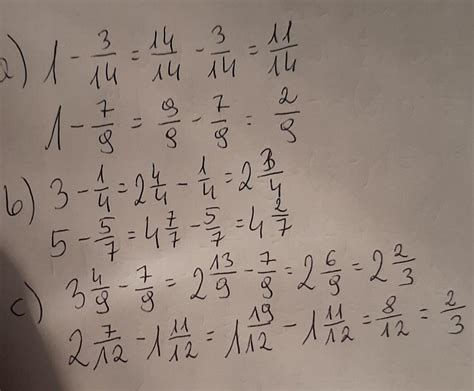 a) 1 - 3/14 = 14/14 - 3/14 = 11/14
1 - 7/9 = 9/9 - 7/9 = 2/9
b) 3 - 1/4 = 2 4/4 - 1/4 = 2 3/4
5 - 5/7 = 4 7/7 - 5/7 = 4 2/7
c) 3 4/9 - 7/9 = 2 13/9 - 7/9 = 2 6/9 = 2 2/3
2 7/12 - 1 11/12 = 1 19/12 - 1 11/12 = 8/12 = 2/3